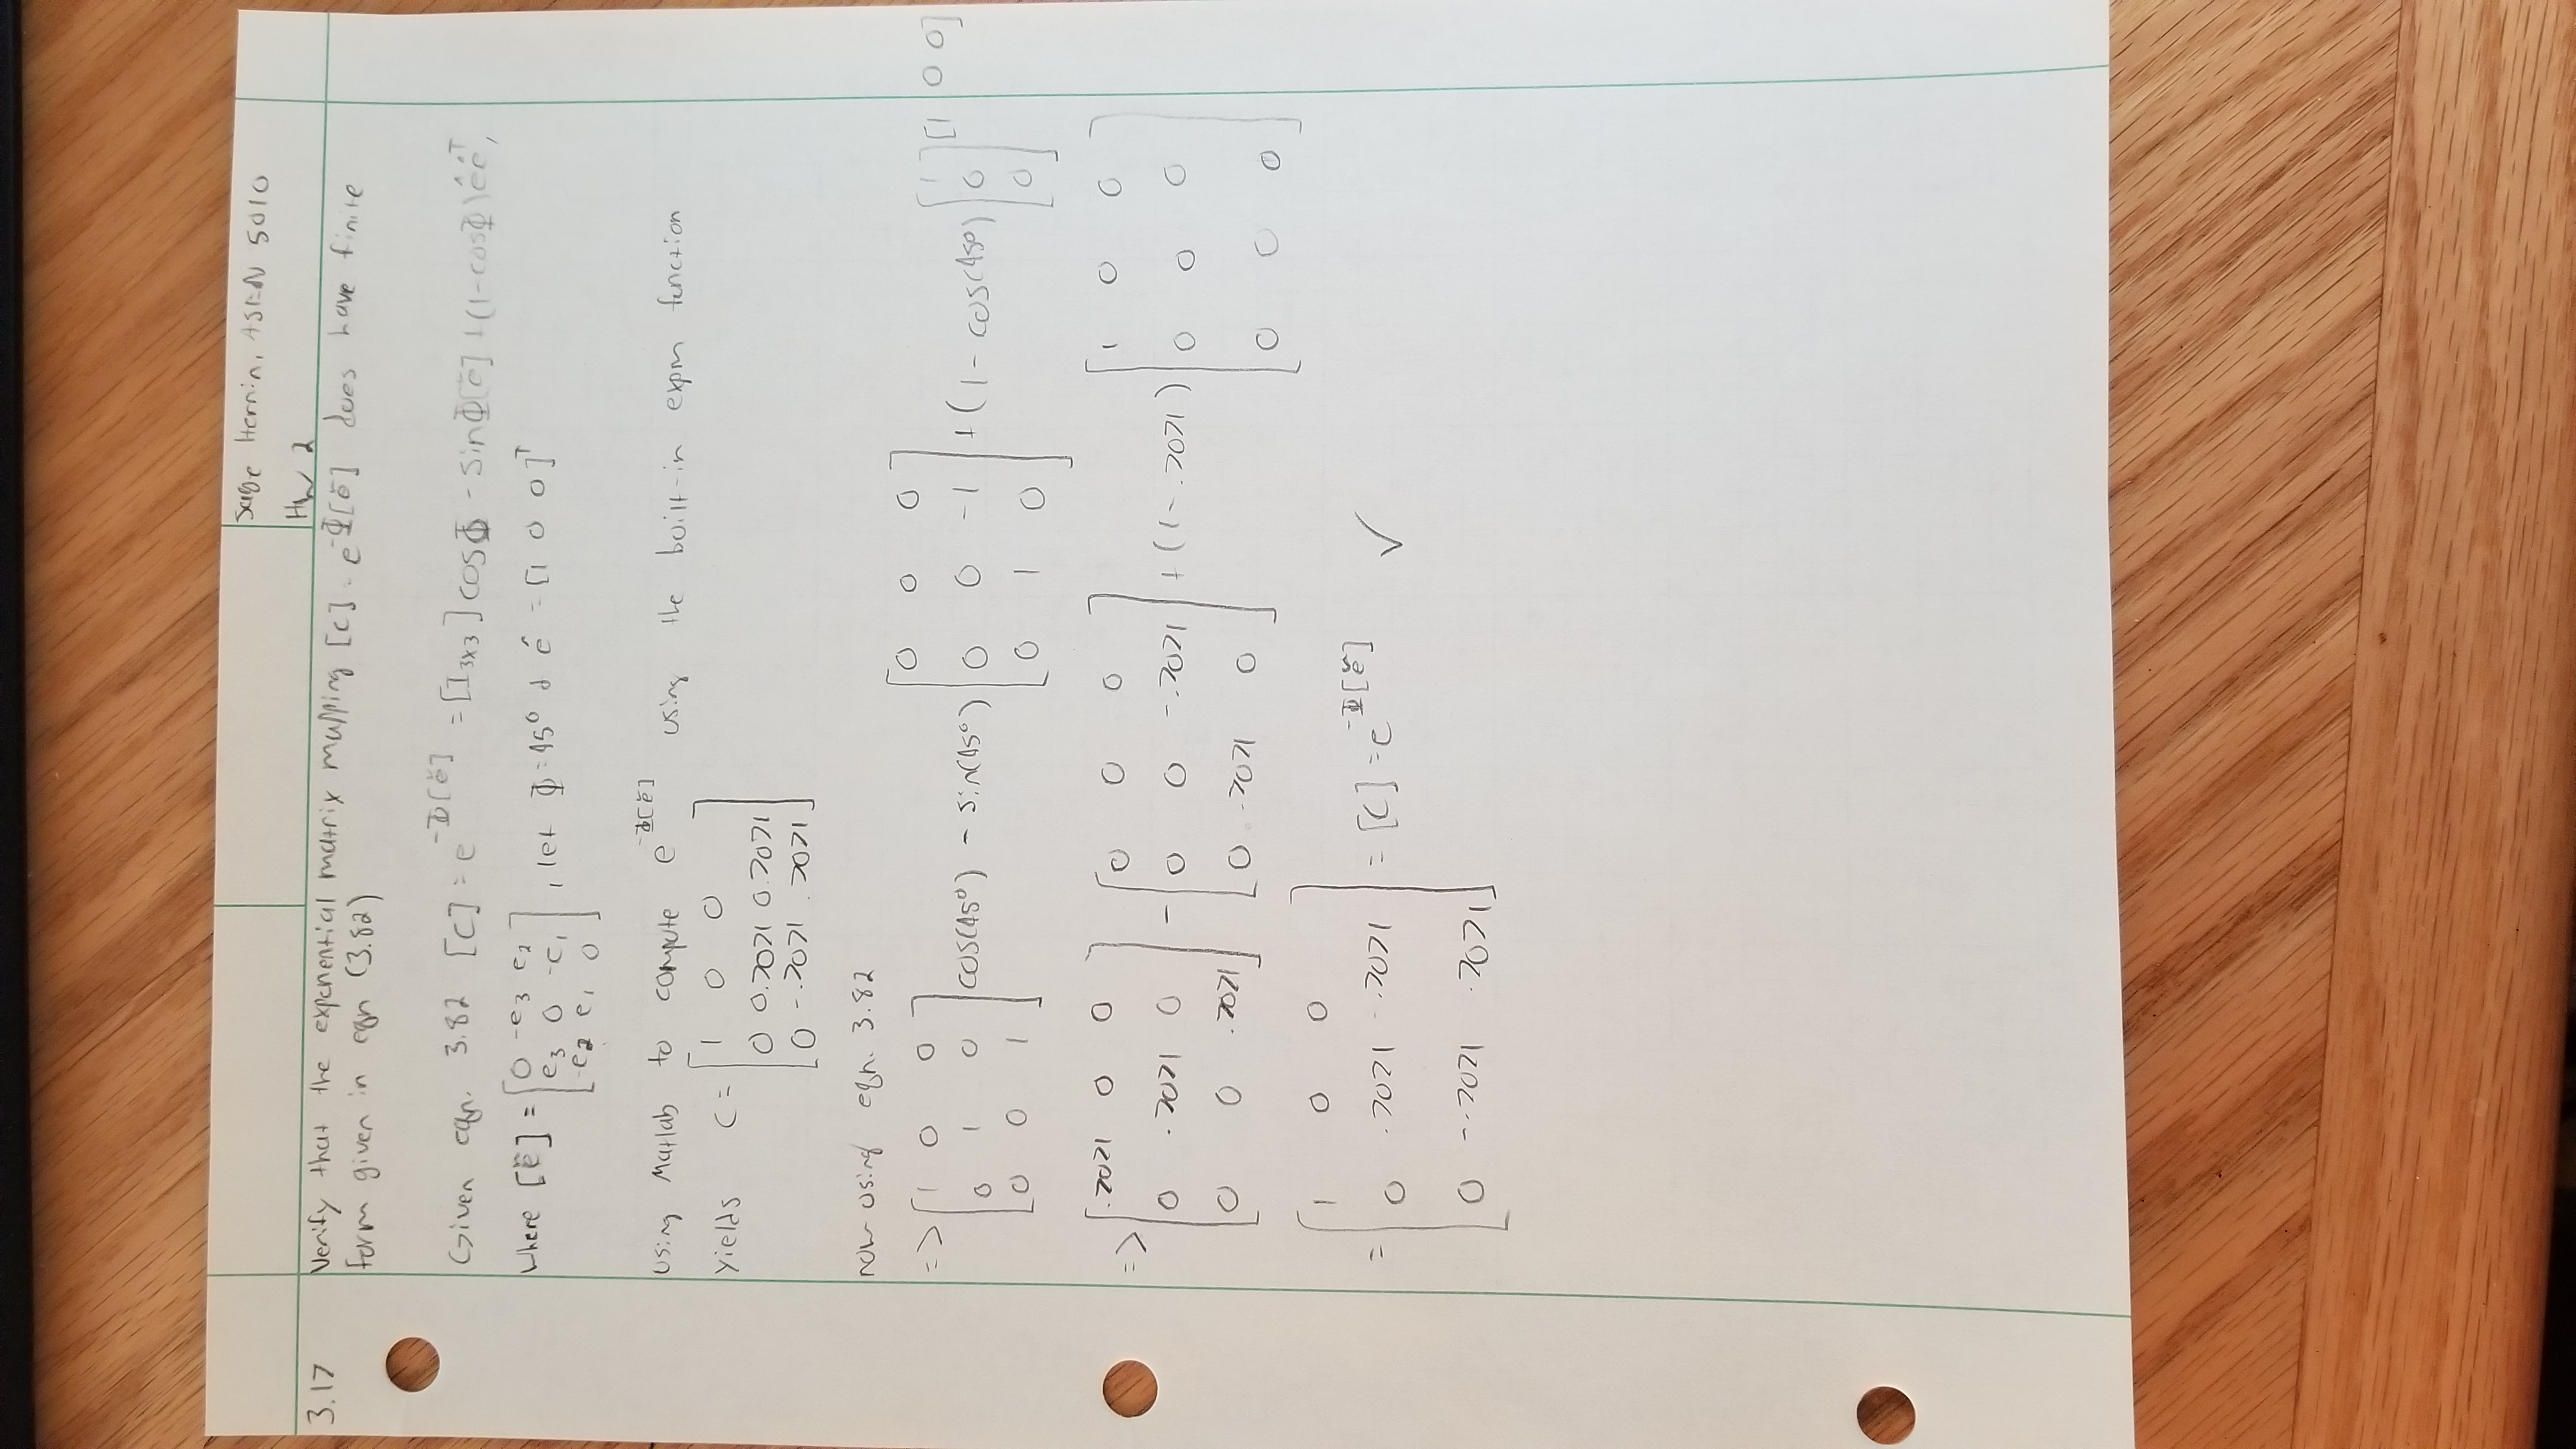 Sage Hernin, ASEN 5010
HW 2
3.17 Verify that the exponential matrix mapping [C] = e^-Φ[ẽ] does have finite
form given in eqn (3.82)
Given eqn. 3.82 [C] = e^-Φ[ẽ] = [I3x3] cosΦ - sinΦ[ẽ] + (1-cosΦ)êê^T,
where [ẽ] = [0 -e3 e2
e3 0 -e1
-e2 e1 0], let Φ=45° & ê = [1 0 0]^T
using Matlab to compute e^-Φ[ẽ] using the built-in expm function
yields C = [1 0 0
0 0.7071 0.7071
0 -.7071 .7071]
now using eqn. 3.82
=> [1 0 0
0 1 0
0 0 1] cos(45°) - sin(45°) [0 0 0
0 0 -1
0 1 0] + (1-cos(45°) [1
0
0] [1 0 0]
=> [.7071 0 0
0 .7071 0
0 0 .7071] - [0 0 0
0 0 -.7071
0 .7071 0] + (1-.7071) [1 0 0
0 0 0
0 0 0]
= [1 0 0
0 .7071 -.7071
0 -.7071 .7071] = [C] = e^-Φ[ẽ] ✓